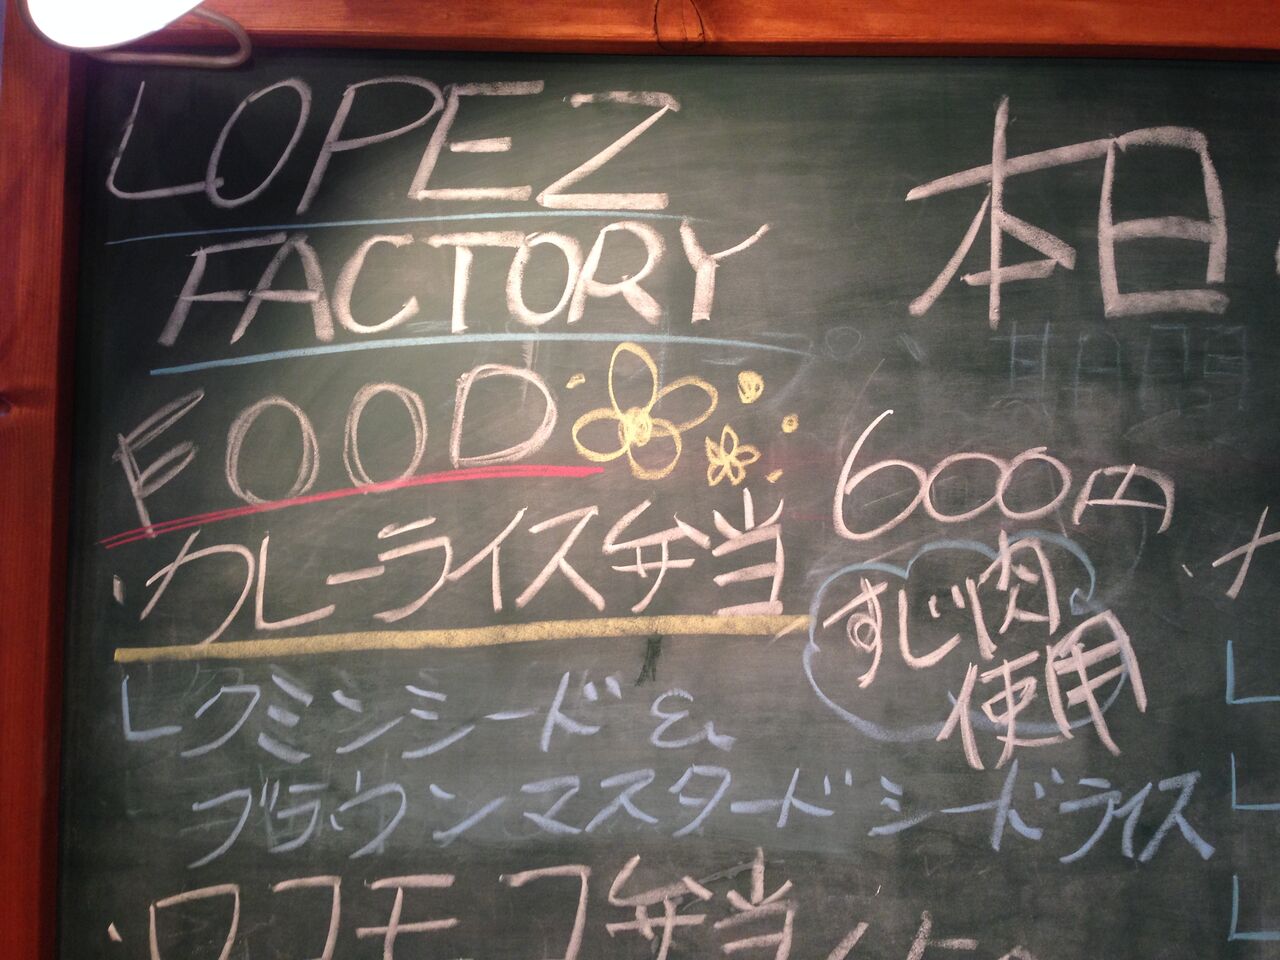 LOPEZ
FACTORY
本日
FOOD
・カレーライス弁当 600円
すじ肉
使用
クミンシード &
ブラウンマスタードシードライス
・ロコモコ弁当